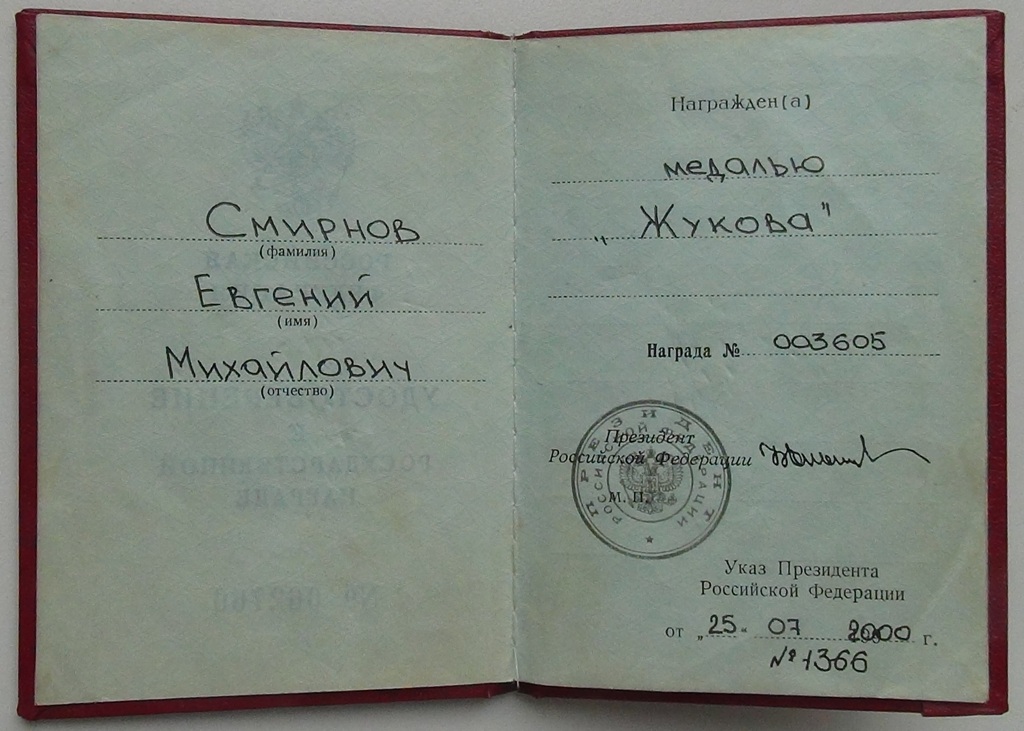 Смирнов
(фамилия)
Евгений
(имя)
Михайлович
(отчество)
Награжден(а)
медалью
„Жукова"
Награда № 003605
Президент
Российской Федерации
М. П.
ПРЕЗИДЕНТ
РОССИЙСКОЙ ФЕДЕРАЦИИ
Указ Президента
Российской Федерации
от „25" 07 2000 г.
№ 1366